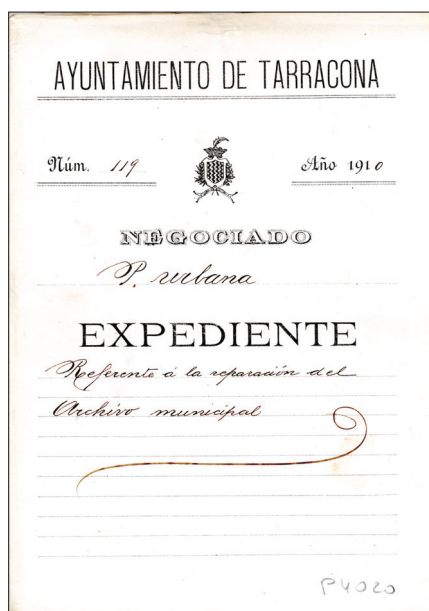 AYUNTAMIENTO DE TARRACONA
Núm. 119 Año 1910
NEGOCIADO
P. urbana
EXPEDIENTE
Referente á la reparación del
Archivo municipal
P4020